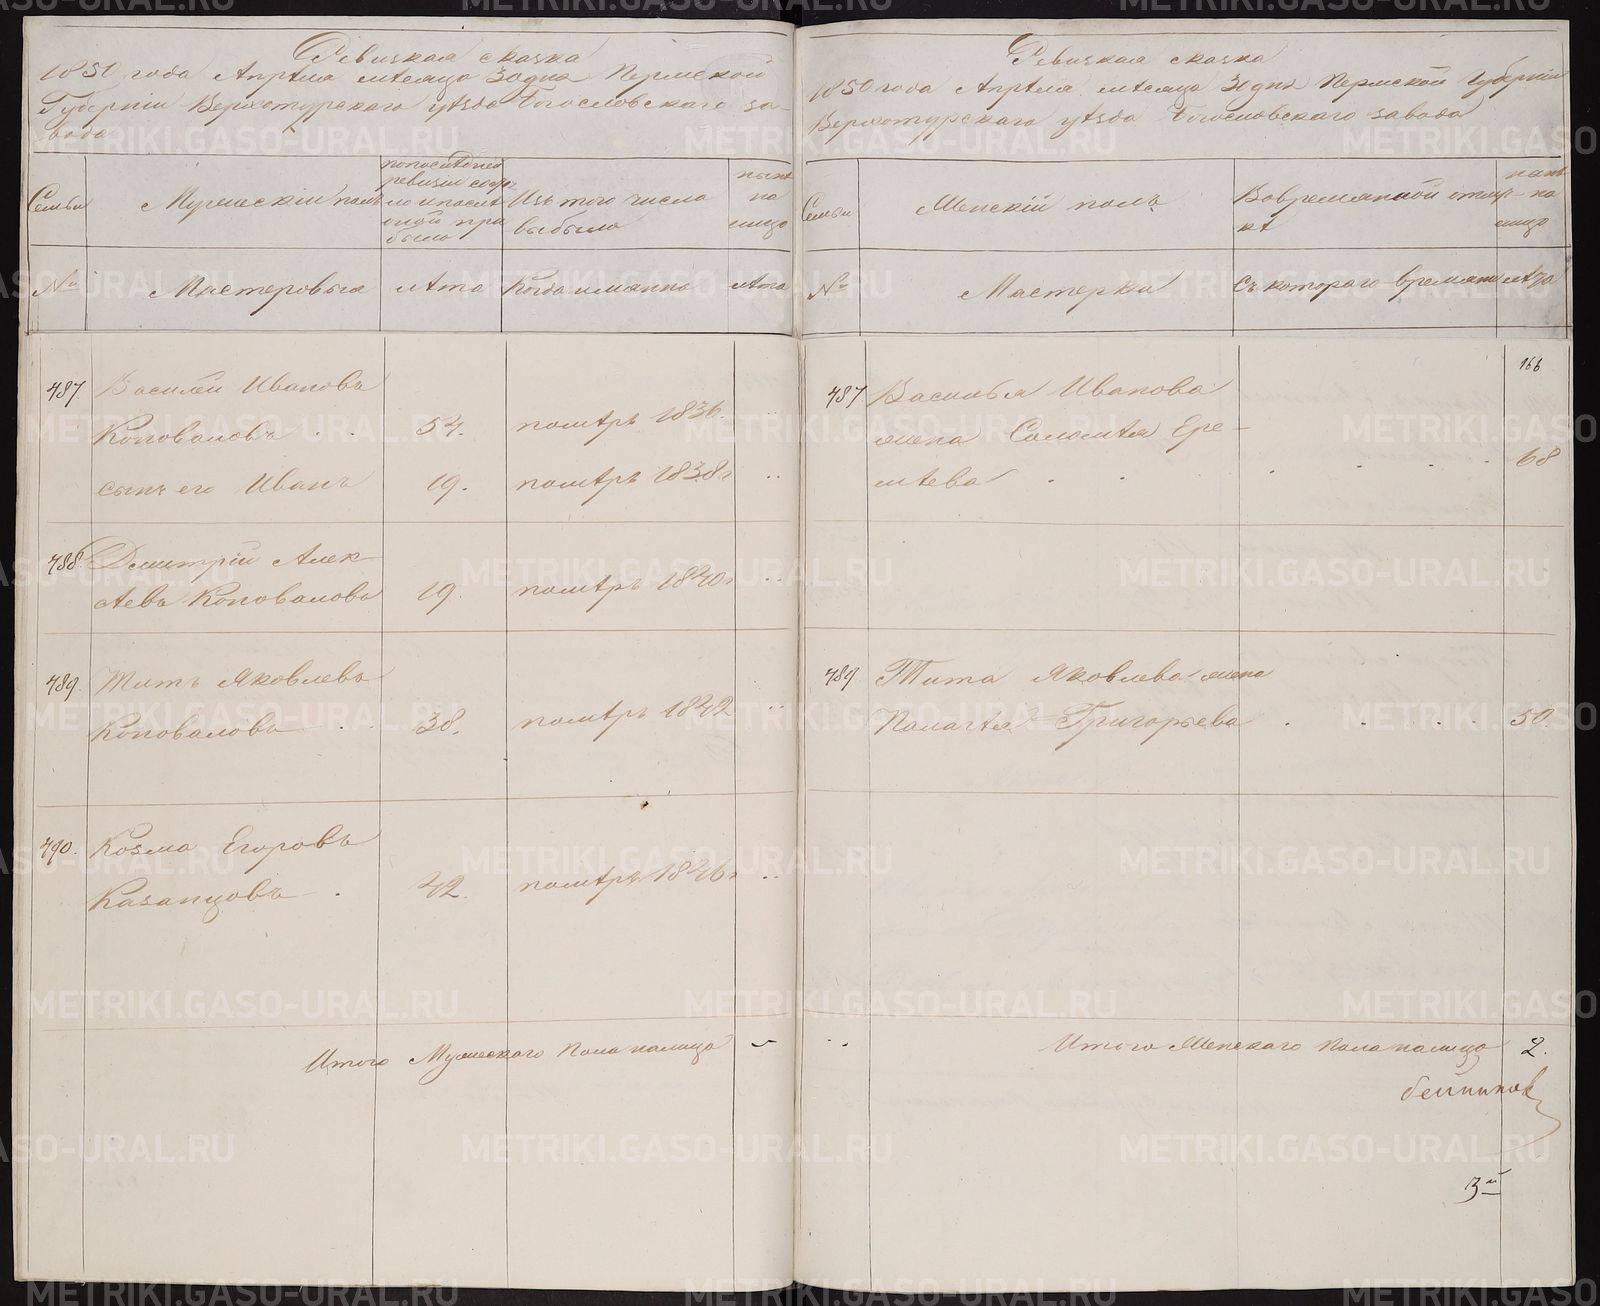 Ревизкая сказка
1850 года Апрѣля мѣсяца 30 дня Пермской
Губерніи Верхотурскаго уѣзда Богословскаго за-
вода
Семьи
Мужескій полъ
по последней
ревизіи состоя-
ло и после
оной при
было
Изъ того числа
выбыло
нынѣ
на
лицо
№
Мастеровыя
лѣта
Когда имянно
лѣта
487
Василей Ивановъ
Коноваловъ . . 54. помѣръ 1836. ..
сынъ его Иванъ 19. помѣръ 1838 г ..
488. Дмитрій Алек-
сѣевъ Коноваловъ 19. помѣръ 1840 г ..
489. Титъ Яковлевъ
Коноваловъ . . 38. помѣръ 1842 ..
490. Козма Егоровъ
Казанцовъ . 42. помѣръ 1846 г ..
Итого Мужескаго пола налицо
Ревизкая сказка
1850 года Апрѣля мѣсяца 30 дня Пермской Губерніи
Верхотурскаго уѣзда Богословскаго завода
Семьи
Женскій полъ
Вовремянной отлуч-
кѣ
нынѣ
на
лицо
№
Мастерки
Съ котораго времяни
лѣта
166
487 Василья Иванова
жена Соломѣя Ере-
мѣева . . . . . . 68
489 Тита Яковлева жена
Палагѣя Григорьева . . . . 50.
Итого Женскаго пола налицо 2.
METRIKI.GASO-URAL.RU